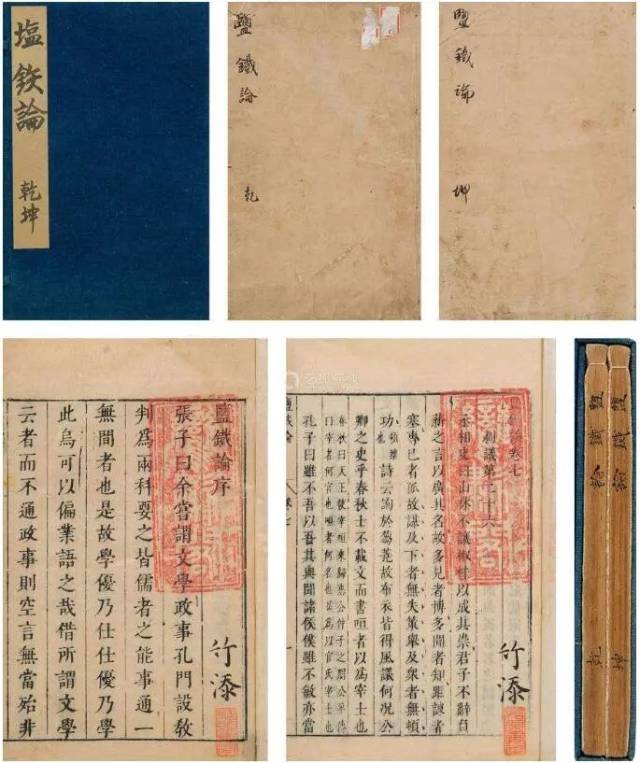 塩鉄論
乾坤
鹽鐵論
乾
鹽鐵論
坤
鹽鐵論序
張子曰余嘗謂文學政事孔門設教
判爲兩科要之皆儒者之能事通一
無間者也是故學優乃仕仕優乃學
此烏可以偏業語之哉借所謂文學
云者而不通政事則空言無當殆非
竹添
鹽鐵論卷七
刺議第二十六
丞相史曰山林不讓椒桂以成其崇君子不辭負
薪之言以廣其名故多見者博多聞者知距諫者
塞專已者孤故謀及下者無失策舉及衆者無頓
功詩云詢於芻蕘故布衣皆得風議何況公
卿之史乎春秋士不載文而書咺者以爲宰士也
孔子曰雖不吾以吾其與聞諸侯僕雖不敏亦當
鹽鐵論
卷七
竹添
鹽鐵論
坤
鹽鐵論
乾